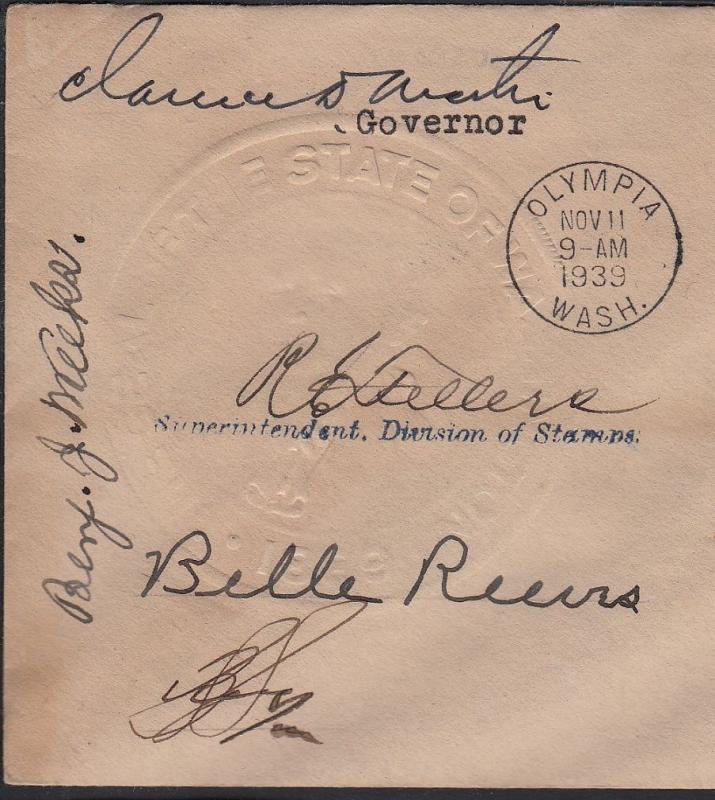 Clarence D Martin
Governor
OLYMPIA
NOV 11
9-AM
1939
WASH.
THE STATE OF WA
Benj. J. Weeks.
R E Fellers
Superintendent, Division of Stamps.
Belle Reeves